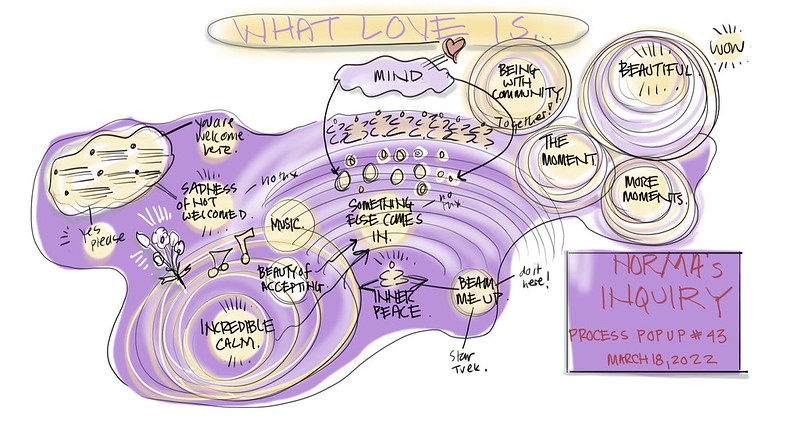 WHAT LOVE IS...
WOW
MIND
BEING
WITH
COMMUNITY.
Together!
BEAUTIFUL
you are
welcome
here.
THE
MOMENT
MORE
MOMENTS.
SADNESS
OF NOT
WELCOMED.
no thx
SOMETHING
ELSE COMES
IN.
no
thx
MUSIC.
yes
please
BEAUTY OF
ACCEPTING.
INNER
PEACE.
BEAM
ME UP.
do it
here!
INCREDIBLE
CALM.
Star
Trek.
NORMA'S
INQUIRY
PROCESS POP UP # 43
MARCH 18, 2022